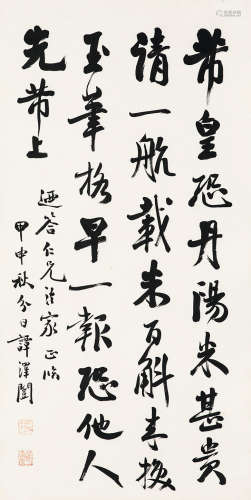 芾皇恐丹陽米甚貴
請一航載米百斛来換
玉筆格早一報恐他人
先芾上
仁兄法家正临
甲申秋分日譚澤闓